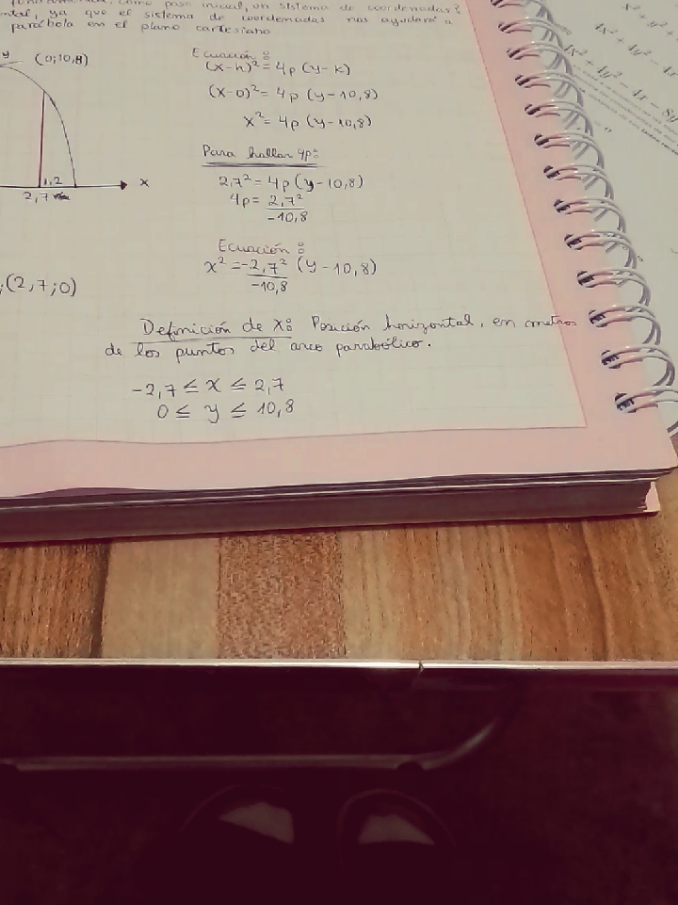 fundamental, como paso inicial, un sistema de coordenadas?
ntal, ya que el sistema de coordenadas nos ayudará a
parábola en el plano cartesiano
y
(0;10,8)
1,2
x
2,7
;(2,7;0)
Ecuación:
(x-h)²= 4p (y-k)
(x-0)²= 4p (y-10,8)
x²= 4p (y-10,8)
Para hallar 4p:
2,7²= 4p (y-10,8)
4p= 2,7²
-10,8
Ecuación:
x² = -2,7² (y-10,8)
-10,8
Definición de x: Posición horizontal, en metros
de los puntos del arco parabólico.
-2,7 ≤ x ≤ 2,7
0 ≤ y ≤ 10,8
x² + y² +
4x² + 4y² - 4x
4x² + 4y² - 4x - 8y